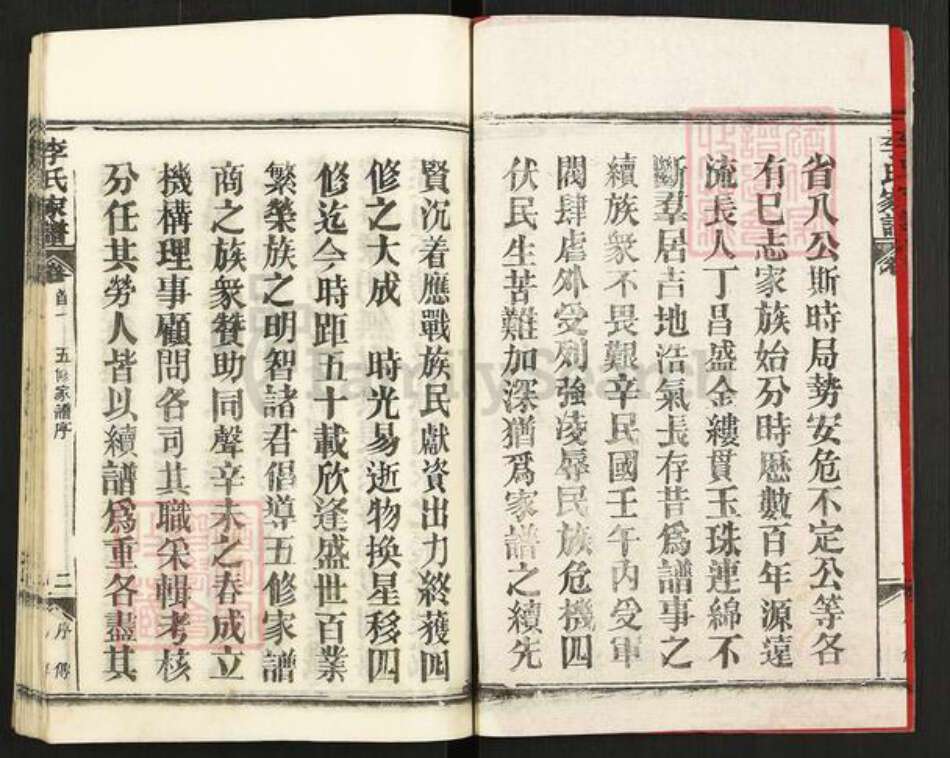 省八公斯時局勢安危不定公等各
有巳志家族始分時歷數百年源遠
流長人丁昌盛金縷貫玉珠連綿不
斷羣居吉地浩氣長存昔爲譜事之
續族衆不畏艱辛民國壬午內受軍
閥肆虐外受列強凌辱民族危機四
伏民生苦難加深猶爲家譜之續先
賢沉着應戰族民獻資出力終獲四
修之大成 時光易逝物換星移四
修迄今時距五十載欣逢盛世百業
繁榮族之明智諸君倡導五修家譜
商之族衆贊助同聲辛未之春成立
機構理事顧問各司其職采輯考核
分任其勞人皆以續譜爲重各盡其
李氏家譜 卷首一 五修家譜序 二 序傳
familysearch